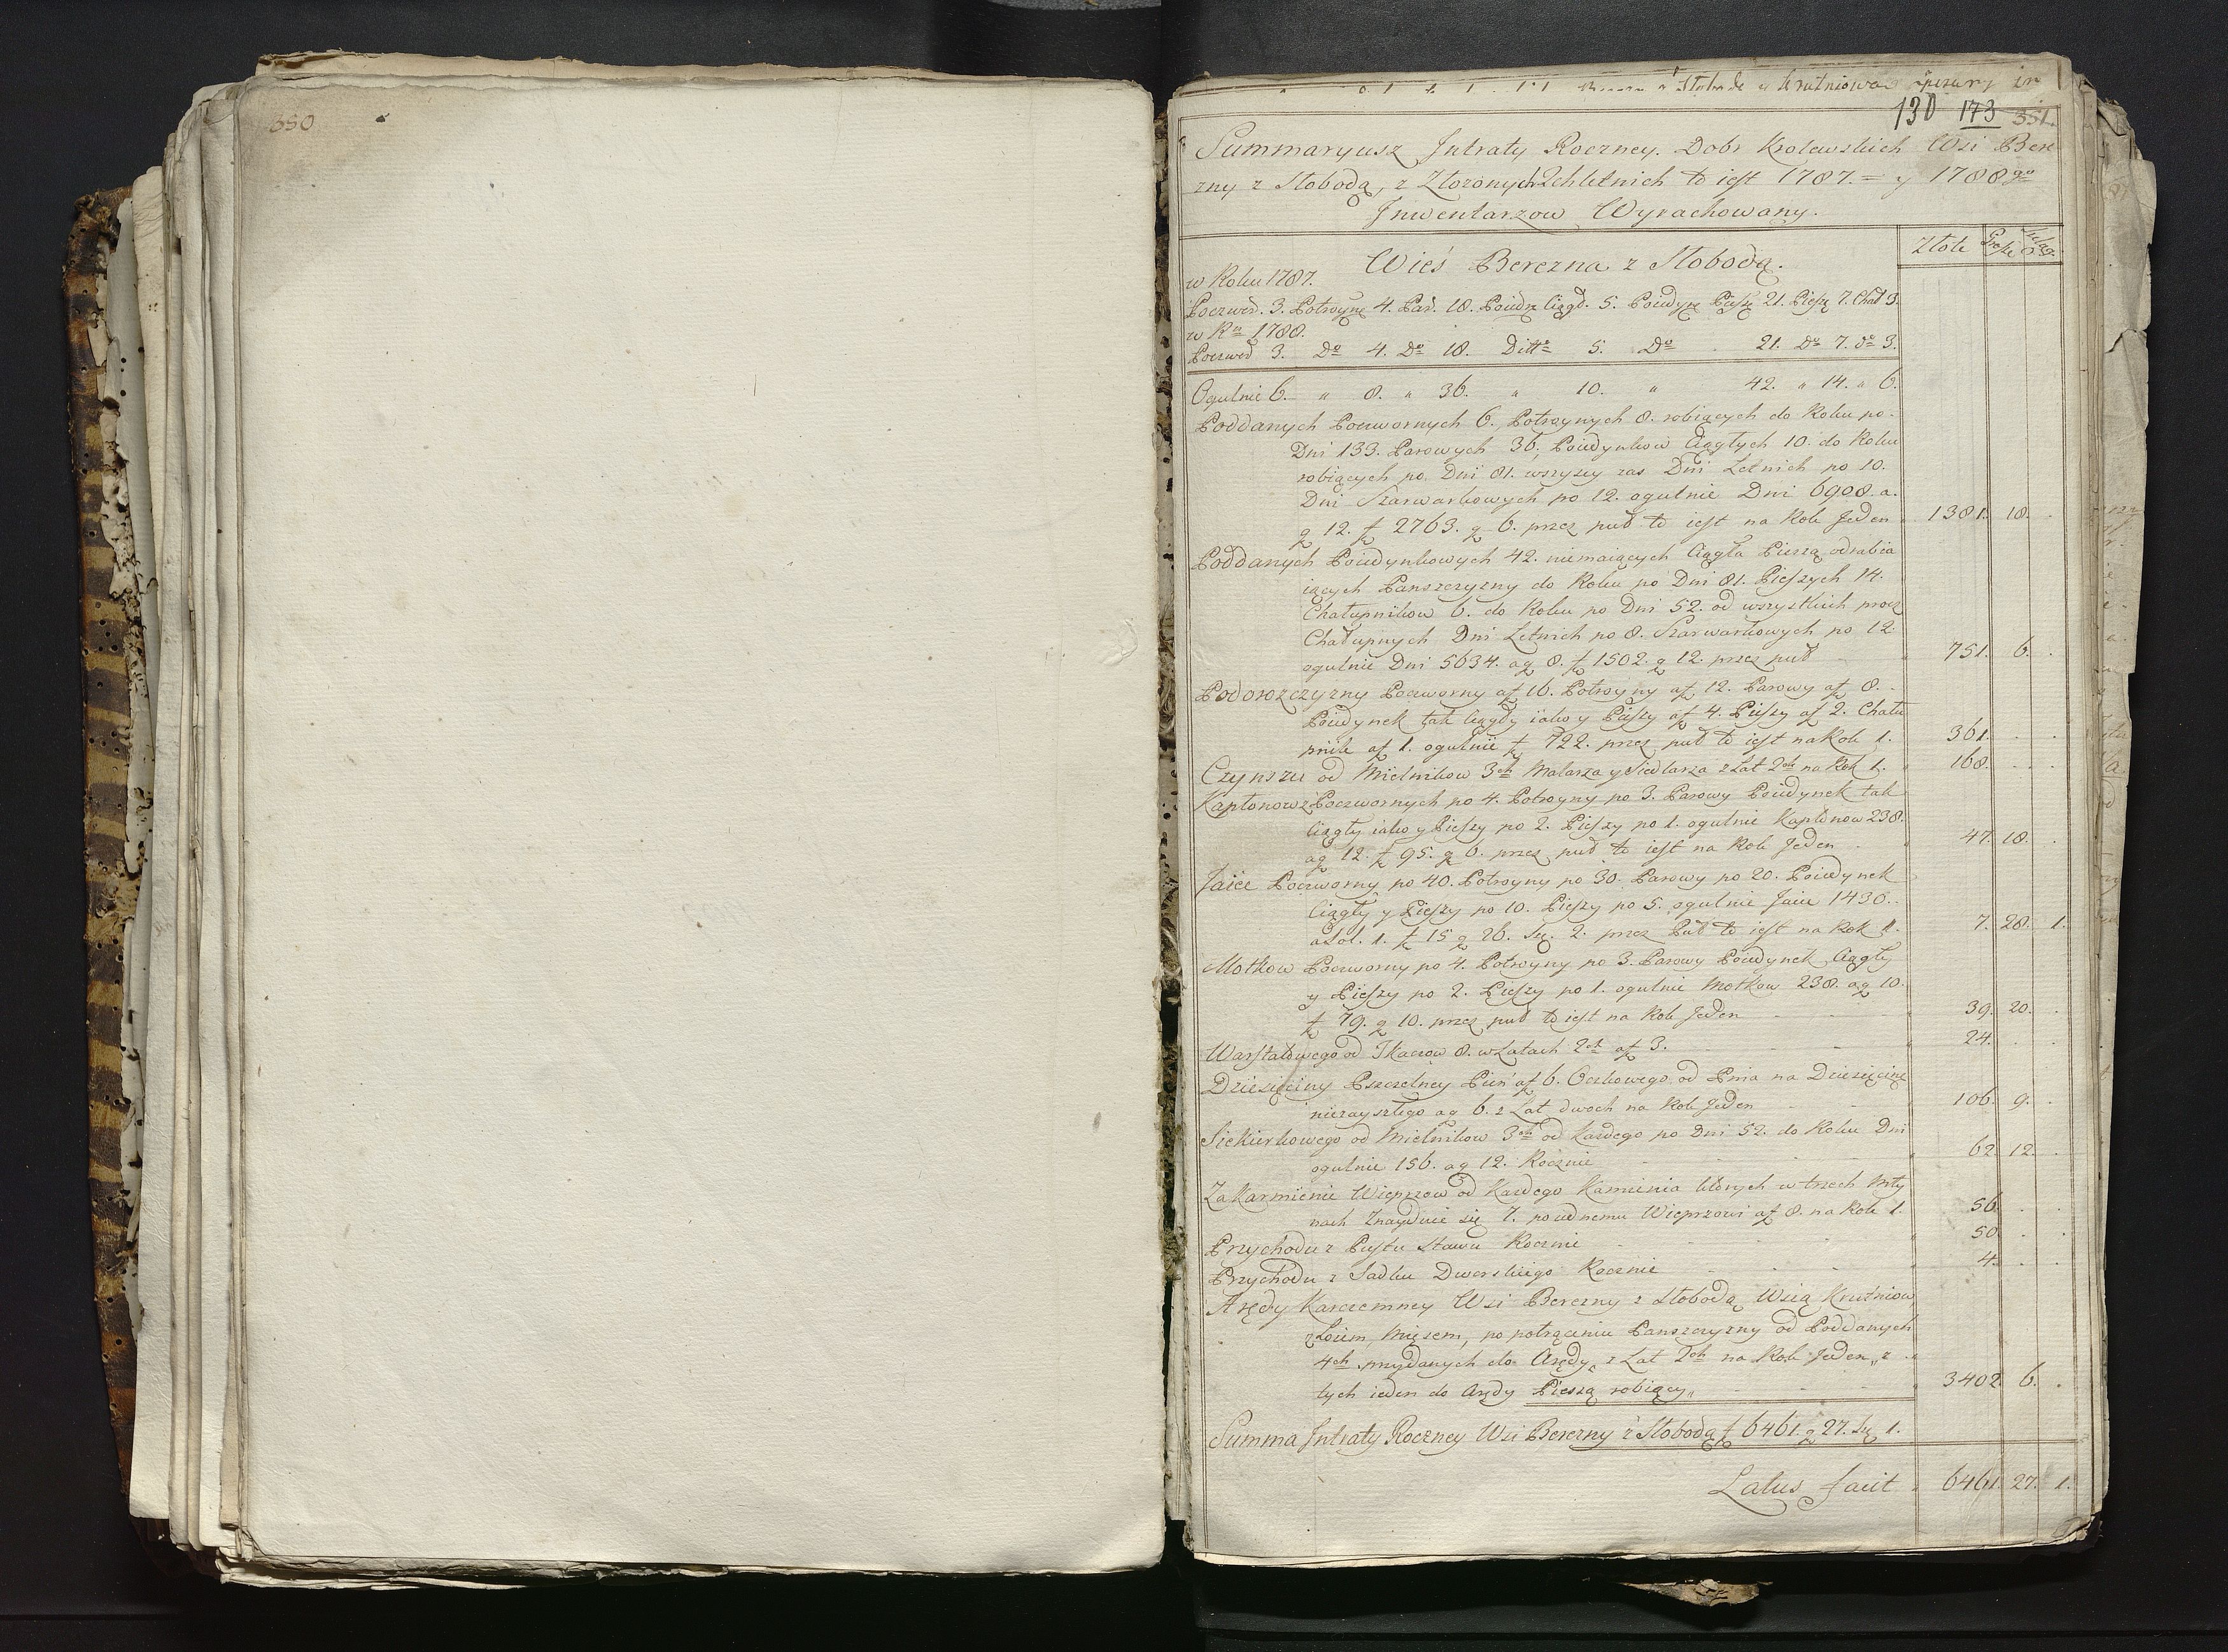 350
Słobodą Krutniowa
130 173 351.
Summaryusz Intraty Roczney. Dobr Krolewskich Wsi Bere
zny z Słobodą, z Złozonych 2chletnich to iest 1787. = y 1788go
Inwentarzow Wyrachowany.
Złote Grosze Szelągi
Wieś Berezna z Słobodą.
w Roku 1787.
Poczwor. 3. Potroyne 4. Par. 18. Poiedn Ciągł. 5. Poiedyn Piesze 21. Piesze 7. Chał 3.
w Ru 1788.
Poczwor 3. Do 4. Do 18. Ditto 5. Do 21. Do 7. do 3.
Ogulnie 6. " 8. " 36. " 10. " 42. " 14. " 6.
Poddanych Poczwornych 6. Potroynych 8. robiących do Roku po.
Dni 133. Parowych 36, Poiedynkow Ciągłych 10. do Roku
robiących po Dni 81. wszyscy zas Dni Letnich po 10.
Dni Szarwarkowych po 12. ogulnie Dni 6908. a.
g 12. f 2763. g 6. przez puł to iest na Rok Jeden 1381. 18.
Poddanych Poiedynkowych 42. niemaiących Ciągła Pieszą odrabia
iących Panszczyzny do Roku po Dni 81. Pieszych 14.
Chałupnikow 6. do Roku po Dni 52. od wszystkich procz
Chałupnych Dni Letnich po 8. Szarwarkowych po 12
ogulnie Dni 5634. ag 8. f 1502. g 12. przez puł 751. 6.
Podorozczyzny Poczworny af 16. Potroyny af 12. Parowy af 8.
Poiedynek tak Ciągły iako y Pieszy af 4. Pieszy af 2. Chału
pnik af 1. ogulnie f 722. przez puł to iest na Rok 1. 361.
Czynszu od Mielnikow 3ch Malarza y Siedlarza z Lat 2ch na Rok 1. 168.
Kapłonow z Poczwornych po 4. Potroyny po 3. Parowy Poiedynek tak
Ciągły iako y Pieszy po 2. Pieszy po 1. ogulnie Kapłonow 238.
ag 12. f 95. g 6. przez puł to iest na Rok Jeden 47. 18.
Jaiec Poczworny po 40. Potroyny po 30. Parowy po 20. Poiedynek
Ciągły y Pieszy po 10. Pieszy po 5. ogulnie Jaiec 1430.
a szel. 1. f 15 g 26. sz. 2. przez Puł to iest na Rok 1. 7. 28. 1.
Motkow Poczworny po 4. Potroyny po 3. Parowy Poiedynek Ciągły
y Pieszy po 2. Pieszy po 1. ogulnie Motkow 238. ag 10.
f 79. g 10. przez puł to iest na Rok Jeden 39. 20.
Warsztatowego od Tkaczow 8. w Latach 2ch af 3. 24.
Dziesięciny Pszczelney Pień af 6. Oczkowego od Pnia na Dziesięcinę
niezayszłego ag 6. z Lat dwoch na Rok Jeden 106. 9.
Siekierkowego od Mielnikow 3ch od każdego po Dni 52. do Roku Dni
ogulnie 156. ag 12. Rocznie 62. 12.
Za Karmienie Wieprzow od Każdego Kamienia ktorych w trzech Mły
nach Znayduie się 7. po iednemu Wieprzowi af 8. na Rok 1. 56.
Przychodu z Pustu Stawu Rocznie 50.
Przychodu z Sadku Dworskiego Rocznie 4.
Arędy Karczemney Wsi Berezny z Słobodą, Wsią Krutniow
z Łoiem, Mięsem, po potrąceniu Panszczyzny od Poddanych
4ch przydanych do Arędy, z Lat 2ch na Rok Jeden, z
tych ieden do Arędy Pieszą robiący 3402. 6.
Summa Intraty Roczney Wsi Berezny z Słobodą f 6461. g 27. sz 1.
Latus facit 6461. 27. 1.